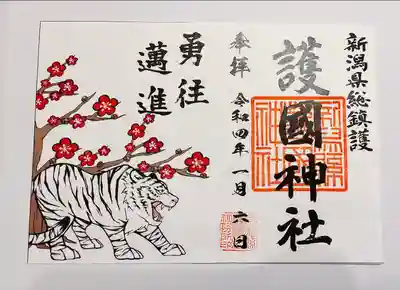 新潟県総鎮護
護國神社
奉拝 令和四年一月六日
勇往
邁進